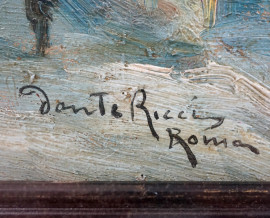 Dante Ricci
Roma